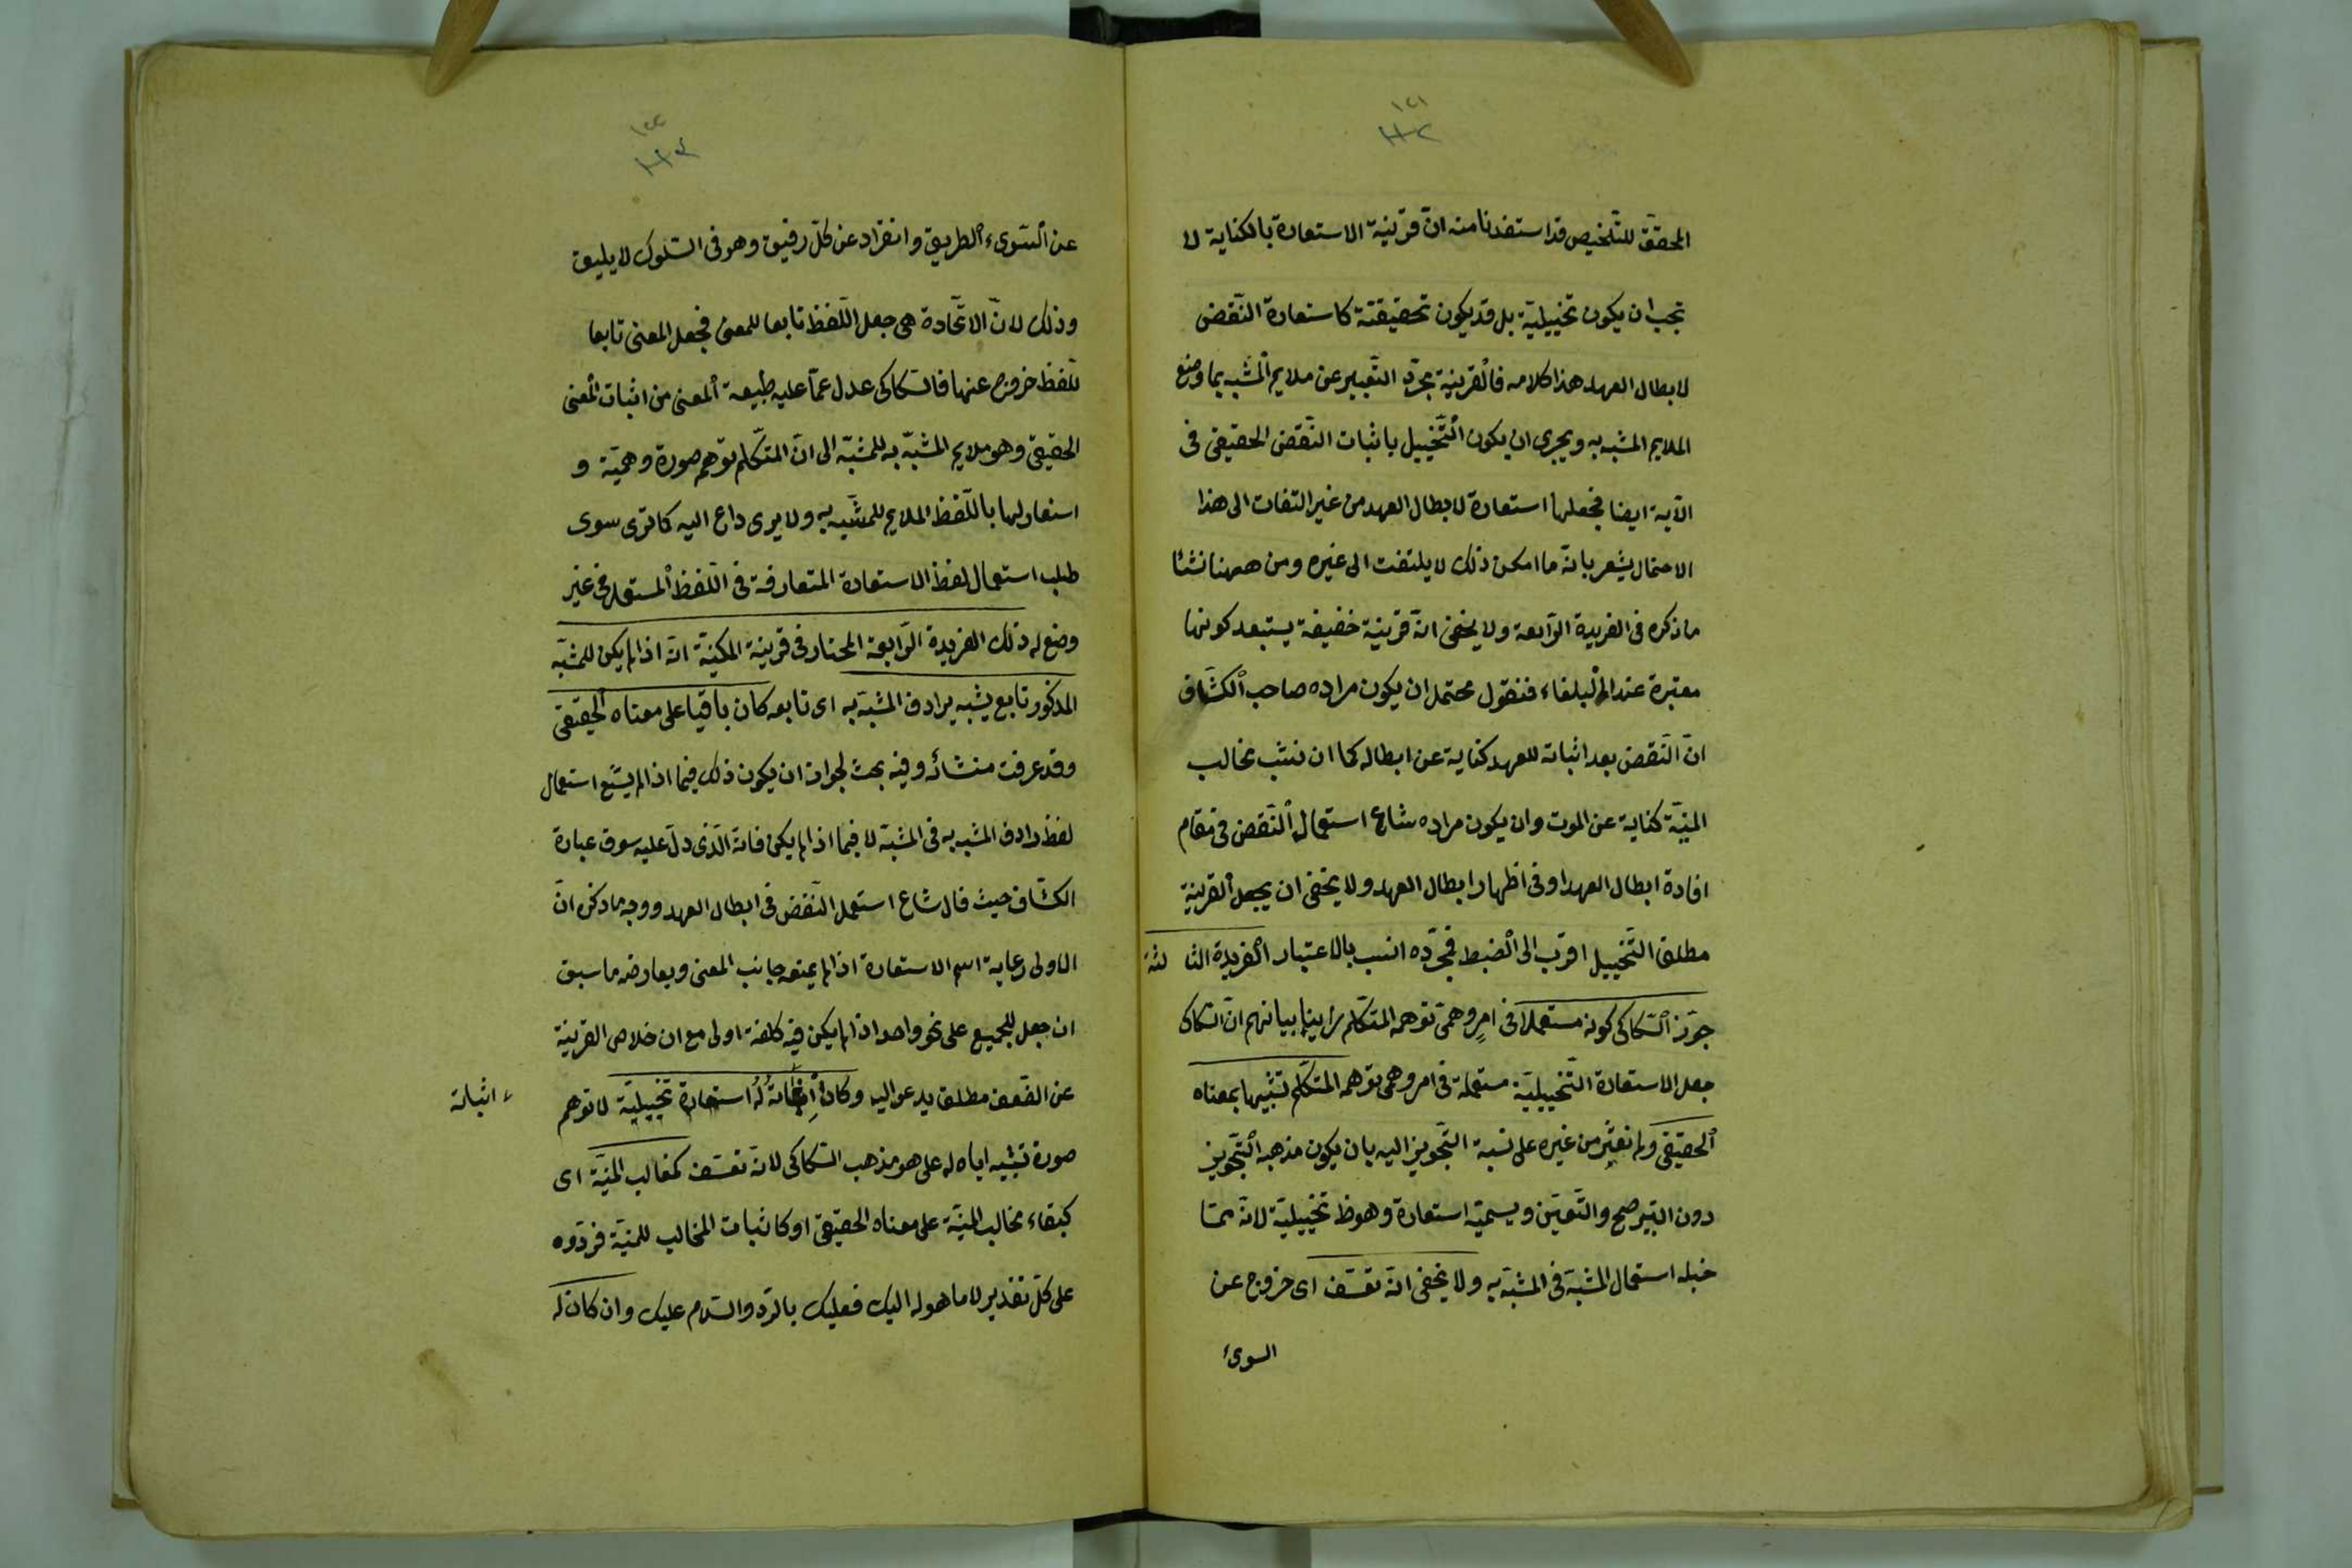 ١٢١
١١٢
المحقق للتلخيص قد استفدنا منه انّ قرينة الاستعارة بالكناية لا
تجب ان يكون تخييلية بل قد يكون تحقيقية كاستعارة النّقض
لابطال العهد هذا كلامه فالقرينة مجرّد التّعبير عن ملايم المشبه بما وضع
الملايم المشبه به ويجرى ان يكون التّخييل باثبات النّقض الحقيقى فى
الآية ايضا فجعلها استعارة لابطال العهد من غير التفات الى هذا
الاحتمال يشعر بانّه ما امكن ذلك لا يلتفت الى غيره ومن ههنا نشئا
ما ذكره فى الفريدة الرّابعة ولا يخفى انّه قرينة خفيفة يستبعد كونها
معتبرة عند البلغاء فنقول محتمل ان يكون مراده صاحب الكشّاف
انّ النّقض بعد اثباته للعهد كناية عن ابطاله كما ان نشب مخالب
المنيّة كناية عن الموت وان يكون مراده شاع استعمال النّقض فى مقام
افادة ابطال العهد او فى اظهار ابطال العهد ولا يخفى ان يجعل القرينة
مطلق التّخييل اقرب الى الضبط فجرّده انسب بالاعتبار الفريدة الثا لثة
جوّز السّكاكى كونه مستعملا فى امرٍ وهمى توهمه المتكلّم بيانهم انّ السّكاكى
جعل الاستعارة التّخييليّة مستعملة فى امر وهمى توهمه المتكلّم تشبيها بمعناه
الحقيقى ولم نعثر من غيره على نسبة التّجويز اليه بان يكون مذهبه التّجويز
دون التّرصح والتّعيّن ويسميّه استعارة وهو ظ تخييليّة لانّه ممّا
خيله استعمال المشبّة فى المشبّة به ولا يخفى انّه تعسّف اى خروج عن
السوىء
١٢٢
١١٣
عن السّوىء الطريق وانفراد عن كلّ رفيق وهو فى السّلوك لا يليق
وذلك لانّ الاتّحادة هى جعل اللّفظ تابعا للمعنى فجعل المعنى تابعا
للّفظ خروج عنها فالسّكاكى عدل عمّا عليه طبيعة المعنى من اثبات المعنى
الحقيقى وهو ملايم المشبّه به للمشبّه الى انّ المتكّلم توهم صورة وهميّة و
استعار لها باللّفظ الملايم للمشبّه به ولا يرى داع اليه كما ترى سوى
طلب استعمال لفظ الاستعارة المتعارفة فى اللّفظ المستعمل فى غير
وضع له ذلك الفريدة الرّابعة المختار فى قرينة المكنيّة انّه اذا لم يكن للمشبّه
المذكور تابع يشبه يرادف المشبّه به اى تابعه كان باقيا على معناه الحقيقى
وقد عرفت منشائه وفيه بحث لجواز ان يكون ذلك فيما اذا لم يشّع استعمال
لفظ رادف المشبه به فى المشبّه لا فيما اذا لم يكن فانّه الّذى دلّ عليه سوق عبارة
الكشّاف حيث قال شاع استعمل النّقض فى ابطال العهد ووجه ما ذكره انّ
الاولى رعاية اسم الاستعارة اذا لم يمنعه جانب المعنى ويعارضه ما سبق
ان جعل للجميع على نحو واحد اذا لم يكن فيه كلفة اولى مع ان خلاص القرينة
عن الضّعف مطلق يدعو اليه وكان اثباته له استعارة تخييليّة لا توهم
اثباته
صورة تشبيه اياه له على هو مذهب السّكاكى لانّه تعسّف كمخالب المنيّة اى
كبقاء مخالب المنيّة على معناه الحقيقى او كاثبات المخالب للمنيّة فردّوه
على كلّ تقدير لا ما هو له اليك فعليك بالرّد والسّلام عليك وان كان له